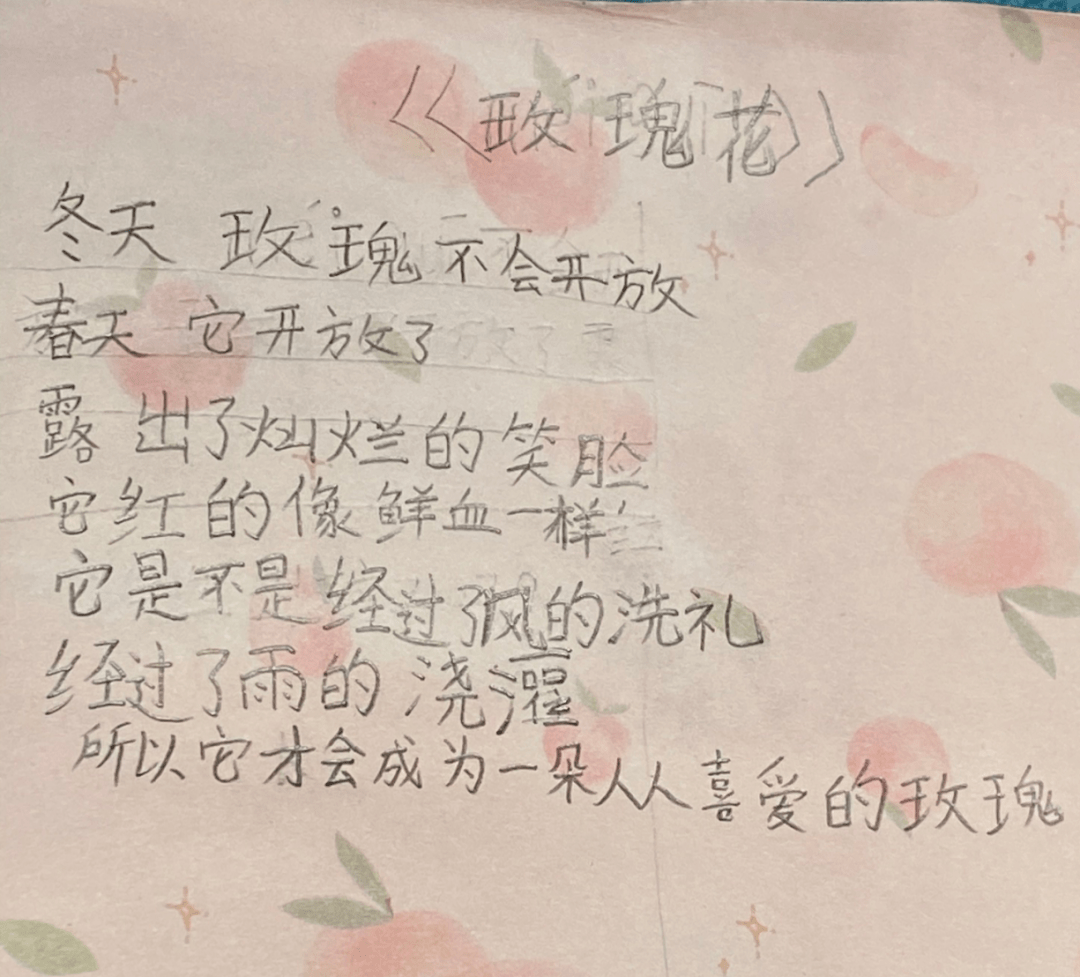 《玫瑰花》
冬天 玫瑰不会开放
春天 它开放了
露出了灿烂的笑脸
它红的像鲜血一样
它是不是经过了风的洗礼
经过了雨的浇灌
所以它才会成为一朵人人喜爱的玫瑰